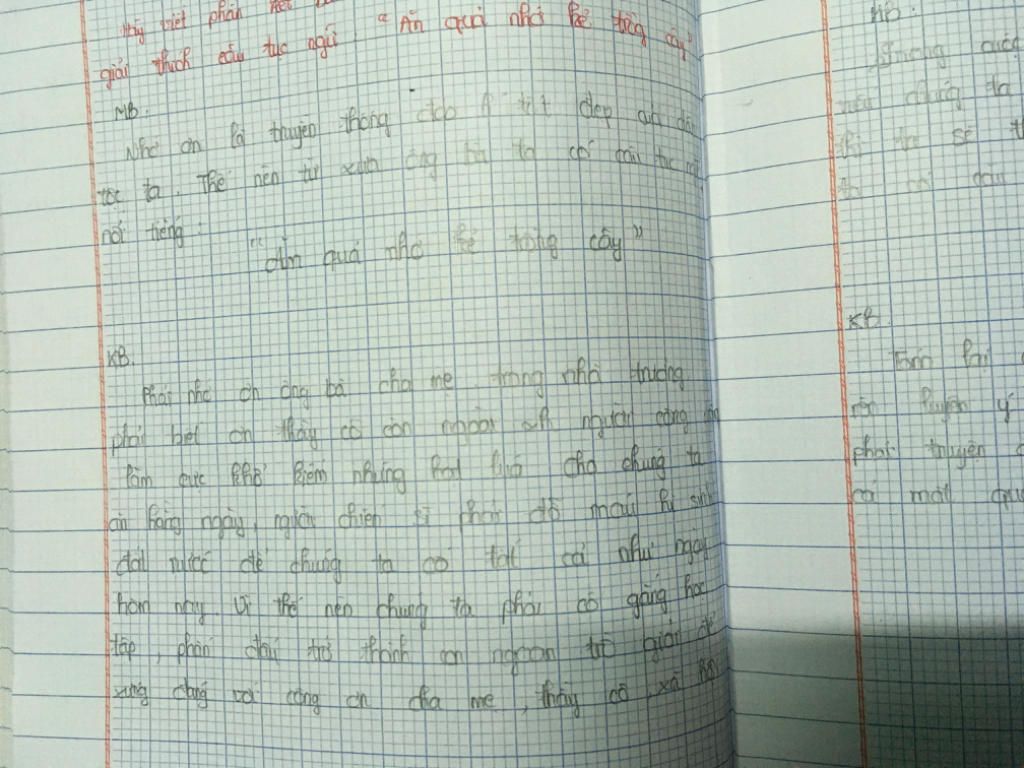 Hãy viết phần kết
giải thích câu tục ngữ. "Ăn quả nhớ kẻ trồng cây"
MB.
Nhớ ơn là truyền thống đạo lí tốt đẹp của dân
tộc ta. Thế nên từ xưa ông bà ta có câu tục ngữ
nổi tiếng:
"Ăn quả nhớ kẻ trồng cây"
KB.
Phải nhớ ơn ông bà cha mẹ, trong nhà trường
phải biết ơn thầy cô còn ngoài người công
làm cực khổ kiếm những cho chúng ta
ăn hằng ngày, người chiến sĩ phải đổ máu hi sinh
đất nước để chúng ta có tất cả như ngày
hôm nay. Vì thế nên chúng ta phải cố gắng học
tập, phấn đấu trở thành con ngoan trò giỏi để
xứng đáng với công ơn cha mẹ, thầy cô, xã hội
MB:
Trong cuộc
nếu chúng ta
thì ta sẽ
có câu
KB.
Tóm lại
rèn luyện ý
phát truyền
có một quả